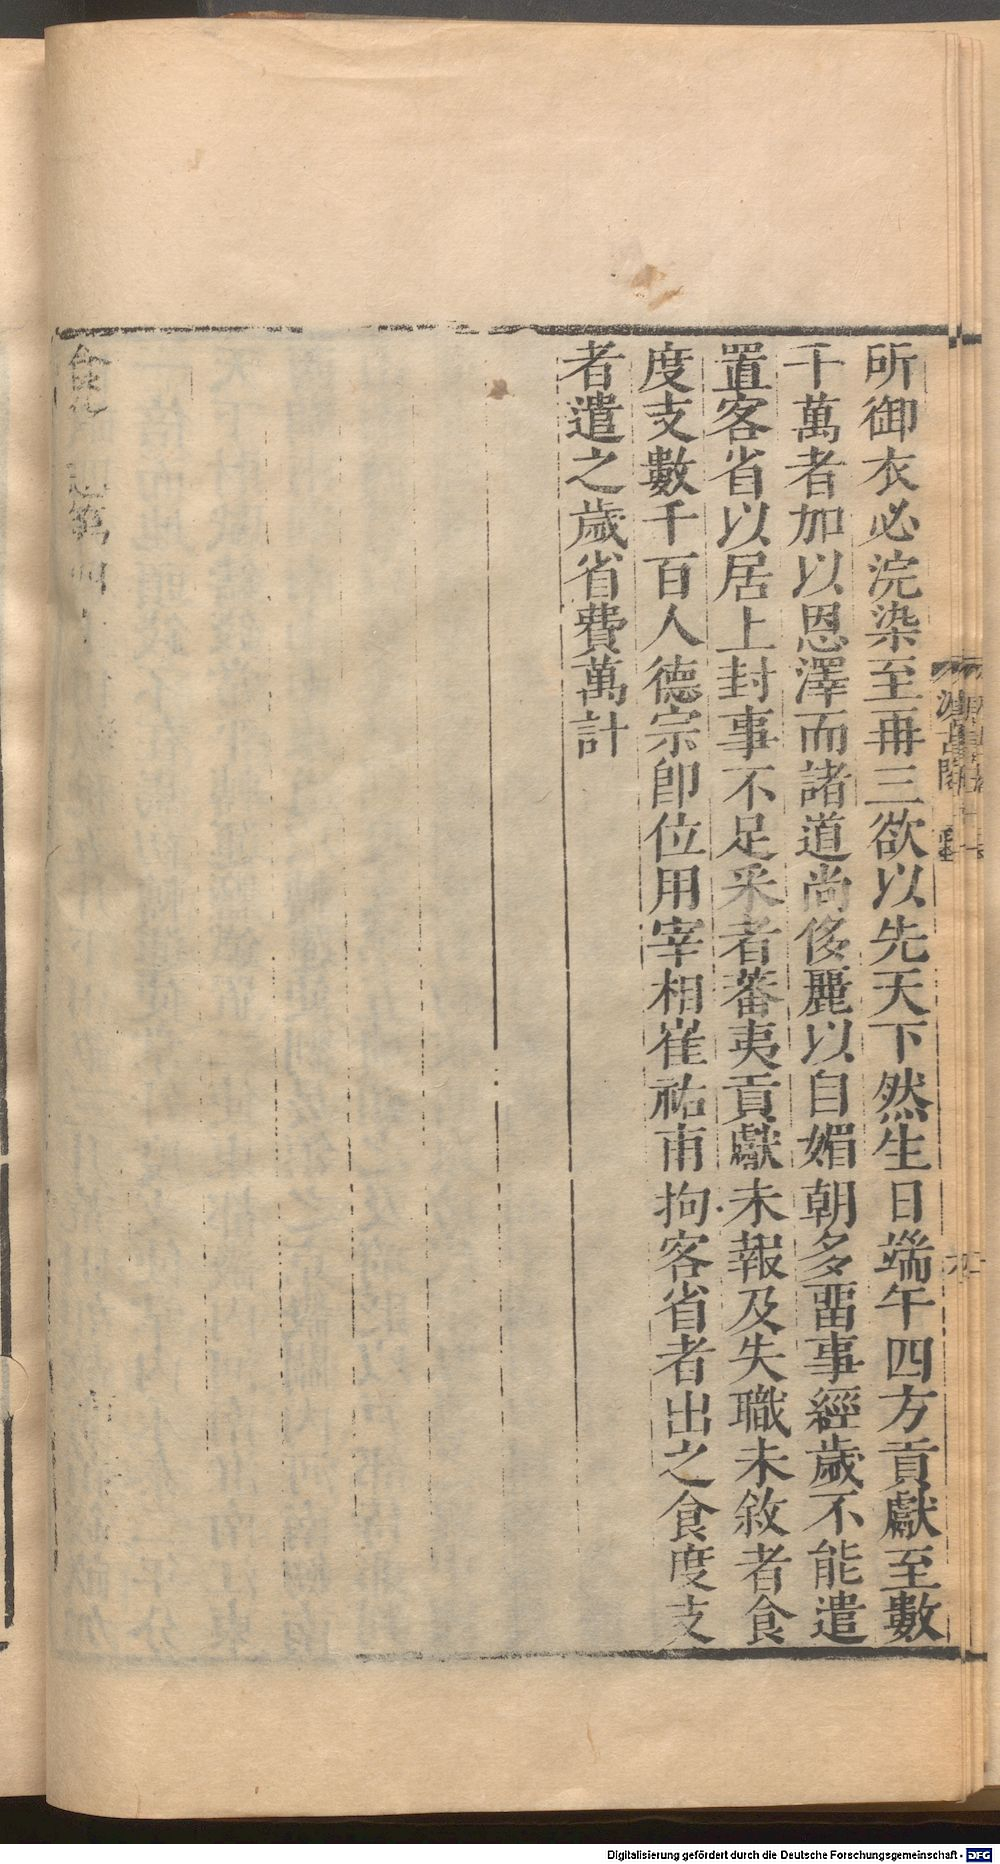 所御衣必浣染至再三欲以先天下然生日端午四方貢獻至數
千萬者加以恩澤而諸道尚侈麗以自媚朝多畱事經歲不能遣
置客省以居上封事不足采者蕃夷貢獻未報及失職未敘者食
度支數千百人德宗卽位用宰相崔祐甫拘客省者出之食度支
者遣之歲省費萬計
食貨
Digitalisierung gefördert durch die Deutsche Forschungsgemeinschaft - DFG